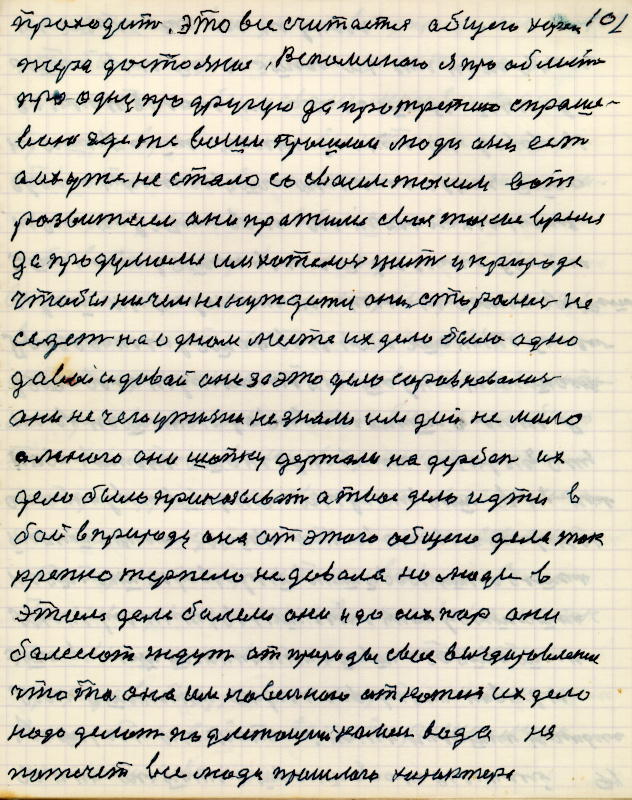 проходит. Это все считается общего харак 101
тера достояние, Вспоминаю я про область
про одну про другую да про третию спраше-
ваю где те ваши прошлои люди они есть
али уже не стало со своим таким вот
развитием они пратили свае такое время
да продумали им хателось жит у природе
чтобы ничем не нуждати они старалис не
седет на одном месте их дело было адно
давай и довай они за это дело соравновалис
они не чего у жизни не знали им дай не мало
а много они шапку держали на дербан их
дело было приказыват а твое дело идти в
бой в природу она от этого общего дела так
крепко терпела не довала но люди в
этим деле балели они и до сих пор они
балеют ждут от природы свае выздаровление
что та она им навечного откажет их дело
надо делат под лежащий камен вода не
потечет все люди прошлого характера